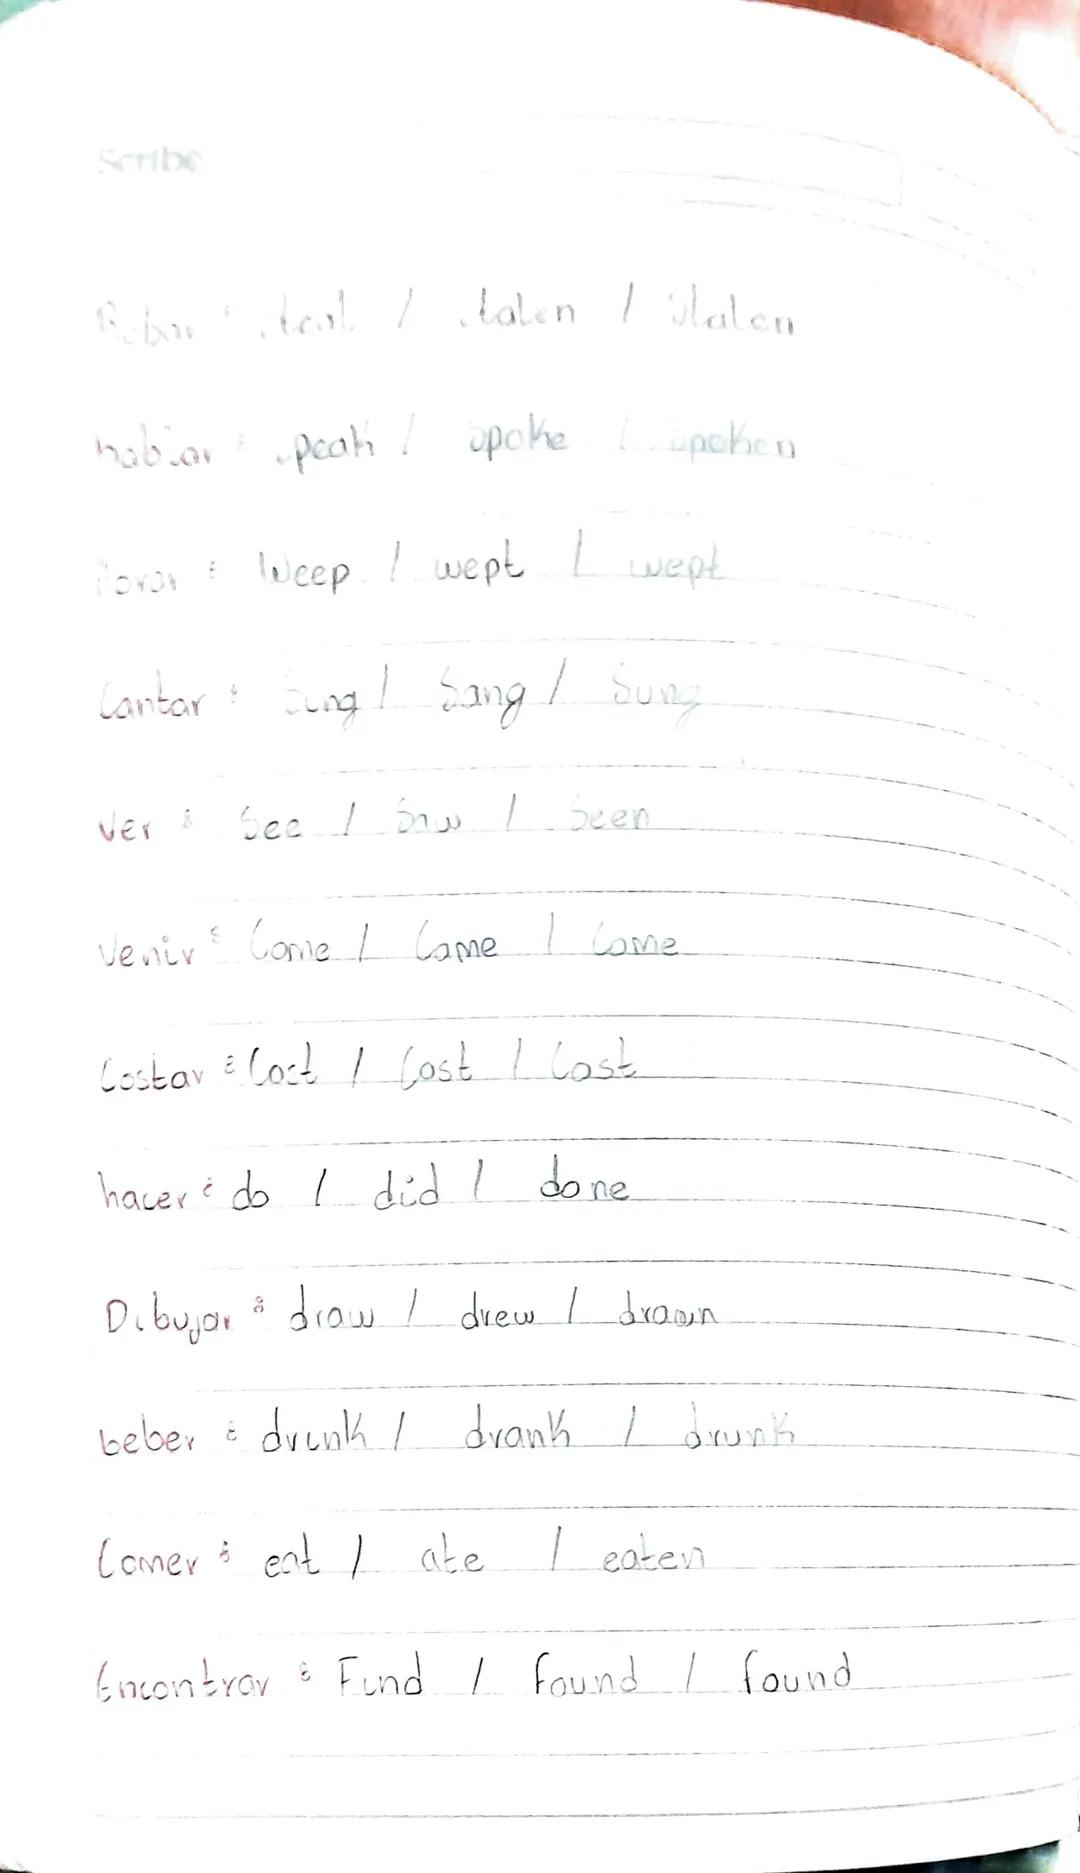 Scribe
Robar : steal / stolen / stolen
hablar : speak / spoke / spoken
llorar : Weep / wept / wept
Cantar : Sing / Sang / Sung
Ver : See / Saw / Seen
Venir : Come / Came / Come
Costar : Cost / Cost / Cost
hacer : do / did / done
Dibujar : draw / drew / drawn
beber : drink / drank / drunk
Comer : eat / ate / eaten
Encontrar : Find / found / found